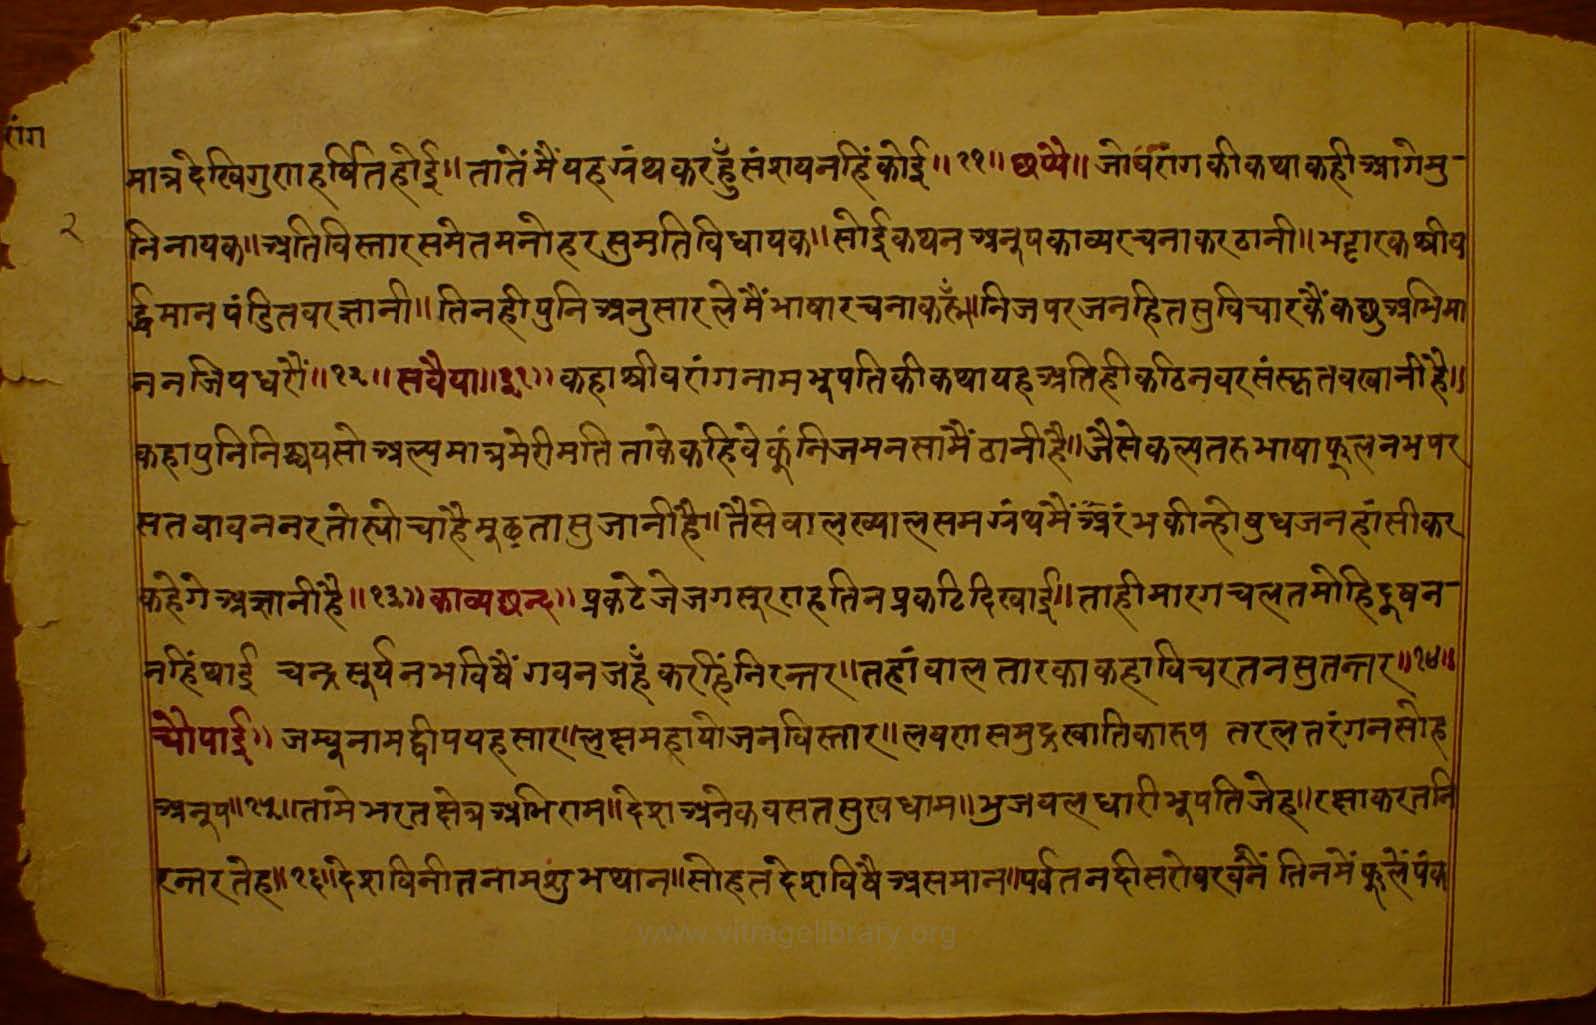 रांग
२
मात्र देखि गुरा हर्षित होई॥ तातें मैं यह ग्रंथ करहुँ संशय नहिं कोई॥११॥ छप्पै॥ जो वरांग की कथा कही आगे मु-
नि नायक॥ अति विस्तार समेत मनोहर सुमति विधायक॥ सोई कथन अनुप काव्य रचना कर ठानी॥ भट्टारक श्रीव
र्द्धमान पंडित वर ज्ञानी॥ तिनही पुनि अनुसार ले मैं भाषा रचना करूँ॥ निज पर जन हित सुविचार कैं कछु अभिमा
न नजिय धरौं॥१२॥ सवैया॥३१॥ कहा श्रीवरांग नाम भूपति की कथा यह अति ही कठिन वर संस्कृत वखानी है॥
कहा पुनि निश्चय सो अल्प मात्र मेरी मति ताके कहिवे कुं निज मनसा मैं ठानी है॥ जैसे कल्पतरु भाषा फूल नभ पर
सत वावन नर तोत्यो चाहै मुढता सु जानी है॥ तैसे वाल ख्याल सम ग्रंथ मैं अरंभ कीन्हो वुधजन हांसी कर
कहेगे अज्ञानी है॥१३॥ काव्य छन्द॥ प्रकटे जे जग सूर राह तिन प्रकटि दिखाई॥ ताही मारग चलत मोहि दूषन-
नहिं थाई चन्द्र सूर्य नभ विषैं गवन जहँ करहिं निरन्तर॥ तहां वाल तारका कहा विचरत न सुतन्तर॥१४॥
चौपाई॥ जम्वु नाम द्वीप यह सार॥ लक्ष महा योजन विस्तार॥ लवरा समुद्र खातिका रूप तरल तरंगन सोह
अनूप॥१५॥ तामे भरत क्षेत्र अभिराम॥ देश अनेक वसत सुखधाम॥ भुजवल धारी भूपति जेह॥ रक्षा करत नि
रन्तर तेह॥१६॥ देश विनीत नाम शुभ थान॥ सोहत देश विषै असमान॥ पर्वत नदी सरोवर वनैं तिनमें फूलें पंक
www.vitragelibrary.org